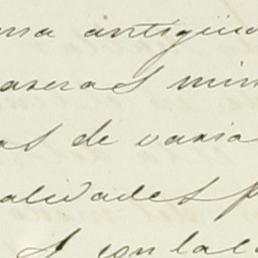 ma antigüe
aseras min
as de varia
alidades p
y con la l